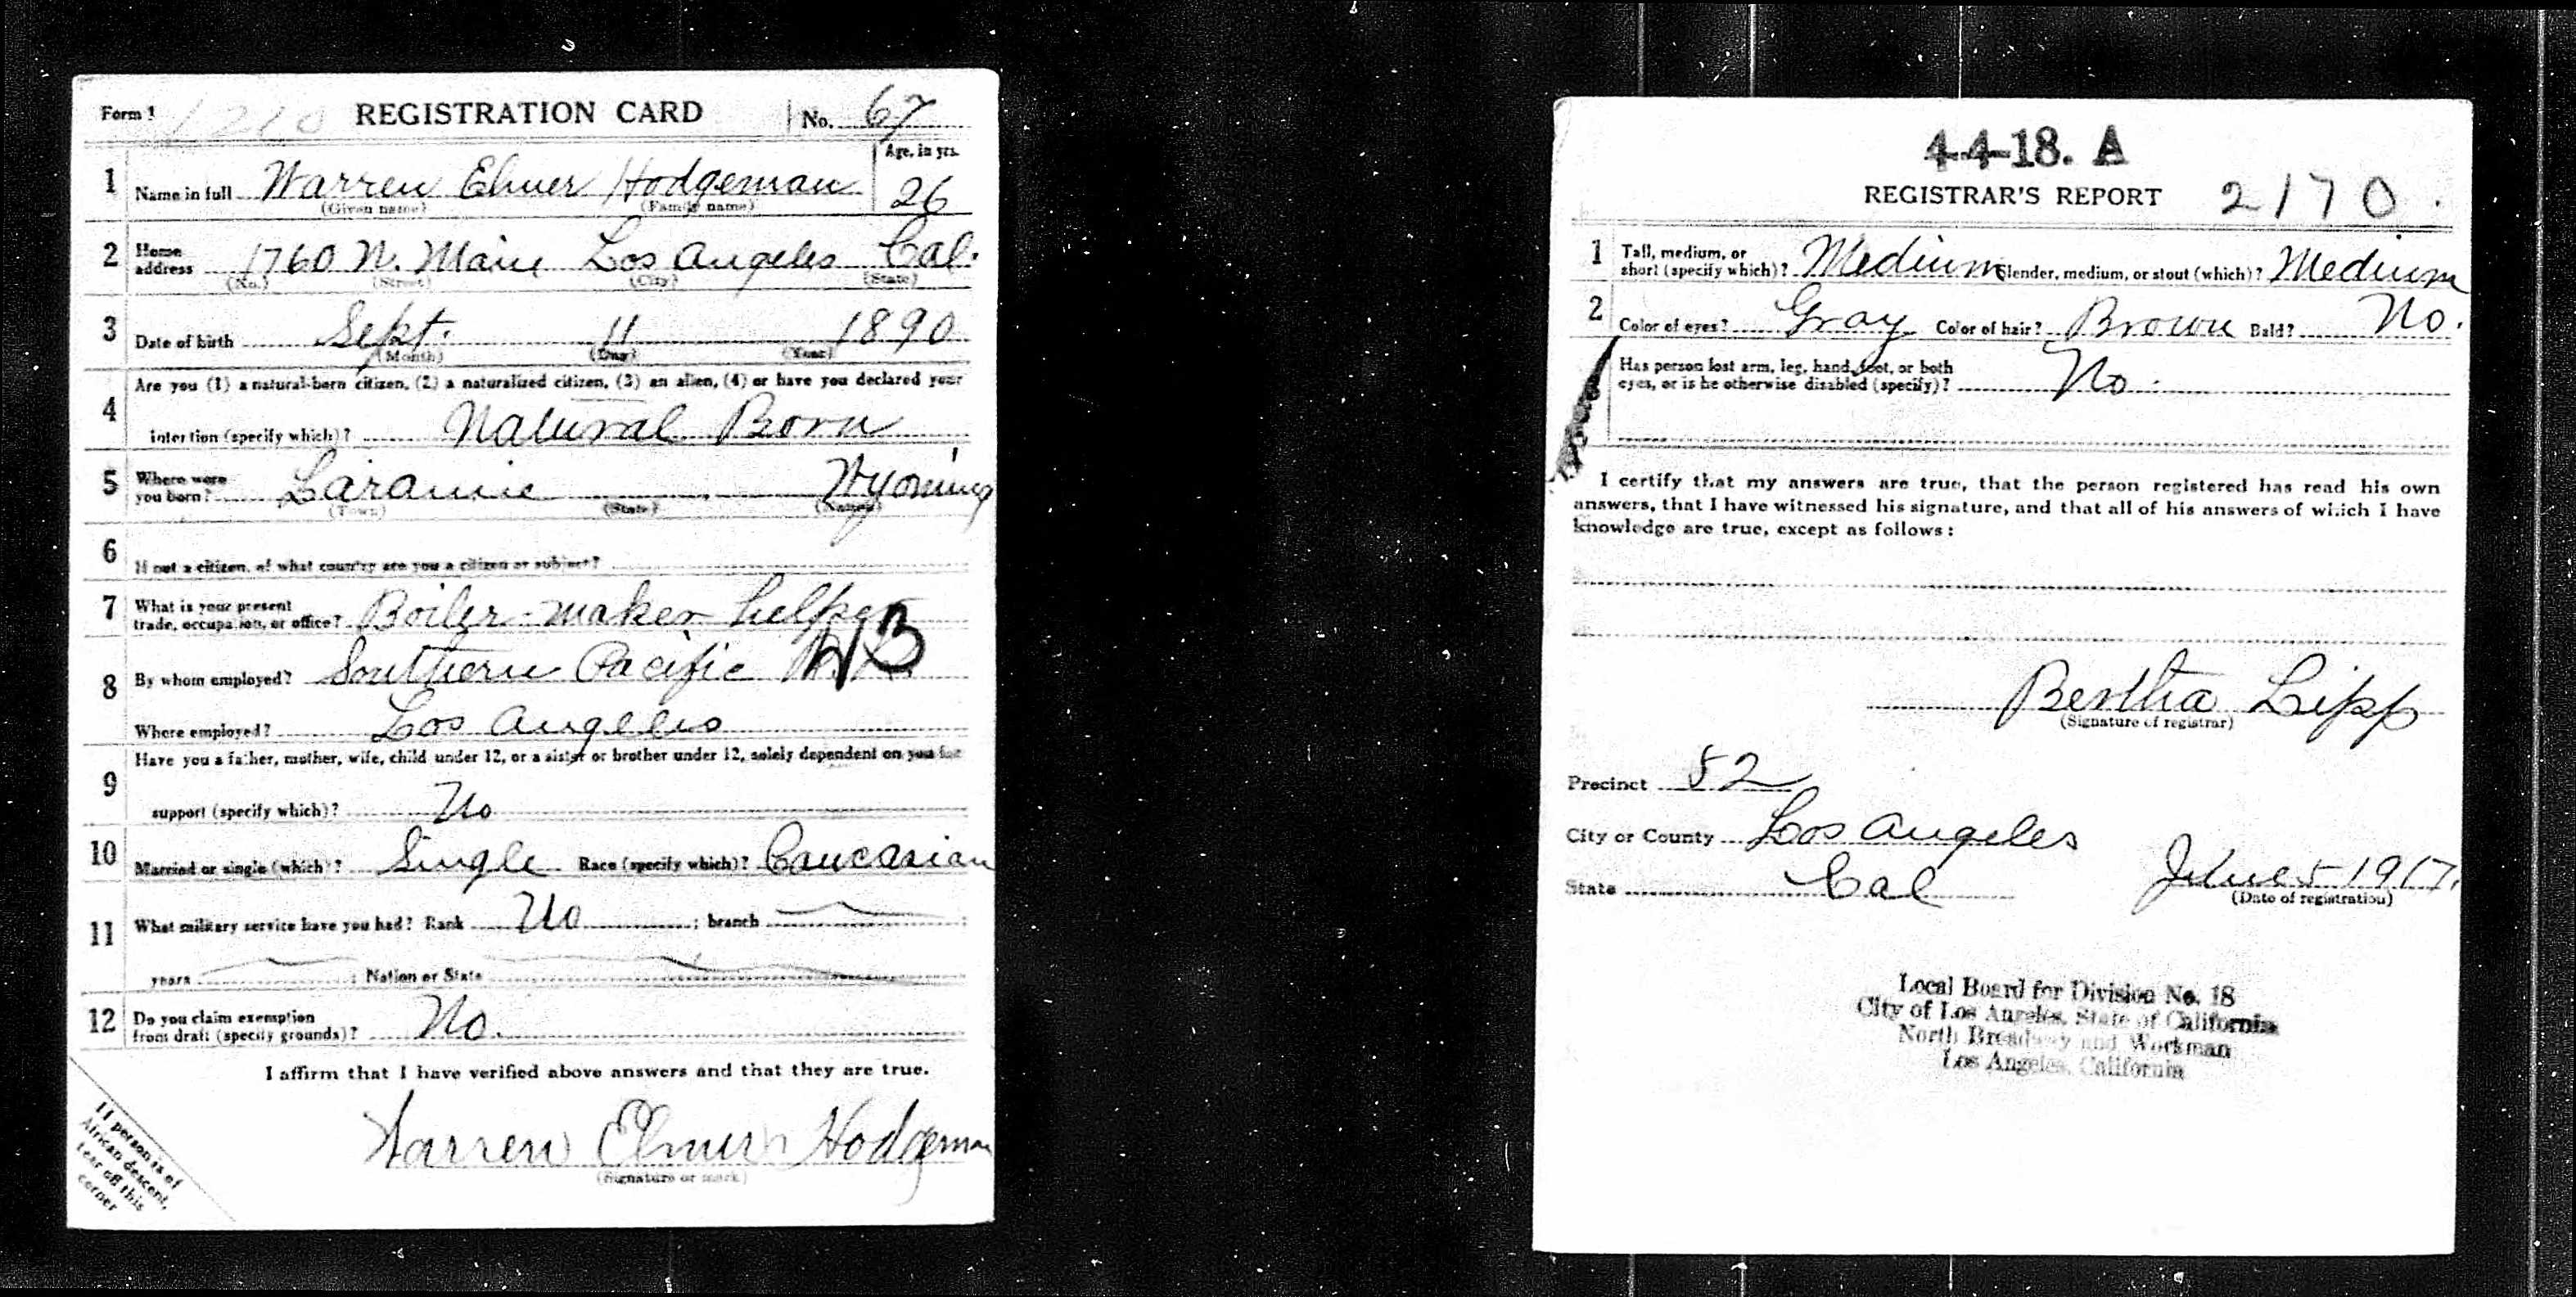 Form 1 REGISTRATION CARD No. 67
Age, in yrs.
1 Name in full Warren Elmer Hodgeman 26
(Given name) (Family name)
2 Home address 1760 N. Main Los Angeles Cal.
(No.) (Street) (City) (State)
3 Date of birth Sept. 11 1890
(Month) (Day) (Year)
Are you (1) a natural-born citizen, (2) a naturalized citizen, (3) an alien, (4) or have you declared your
4 intention (specify which)? Natural Born
5 Where were you born? Laramie Wyoming
(Town) (State) (Nation)
6 If not a citizen, of what country are you a citizen or subject?
7 What is your present trade, occupation, or office? Boiler-maker helper
8 By whom employed? Southern Pacific
Where employed? Los Angeles
Have you a father, mother, wife, child under 12, or a sister or brother under 12, solely dependent on you for
9 support (specify which)? No
10 Married or single (which)? Single Race (specify which)? Caucasian
11 What military service have you had? Rank No ; branch ;
years ; Nation or State
12 Do you claim exemption from draft (specify grounds)? No.
I affirm that I have verified above answers and that they are true.
Warren Elmer Hodgeman
(Signature or mark)
If person is of
African descent,
tear off this
corner
4-4-18. A
REGISTRAR'S REPORT 2170.
1 Tall, medium, or short (specify which)? Medium Slender, medium, or stout (which)? Medium
2 Color of eyes? Gray Color of hair? Brown Bald? No.
Has person lost arm, leg, hand, foot, or both
eyes, or is he otherwise disabled (specify)? No.
I certify that my answers are true, that the person registered has read his own
answers, that I have witnessed his signature, and that all of his answers of which I have
knowledge are true, except as follows:
Bertha Lipp
(Signature of registrar)
Precinct 52
City or County Los Angeles
State Cal June 5 1917.
(Date of registration)
Local Board for Division No. 18
City of Los Angeles, State of California
North Broadway and Workman
Los Angeles, California